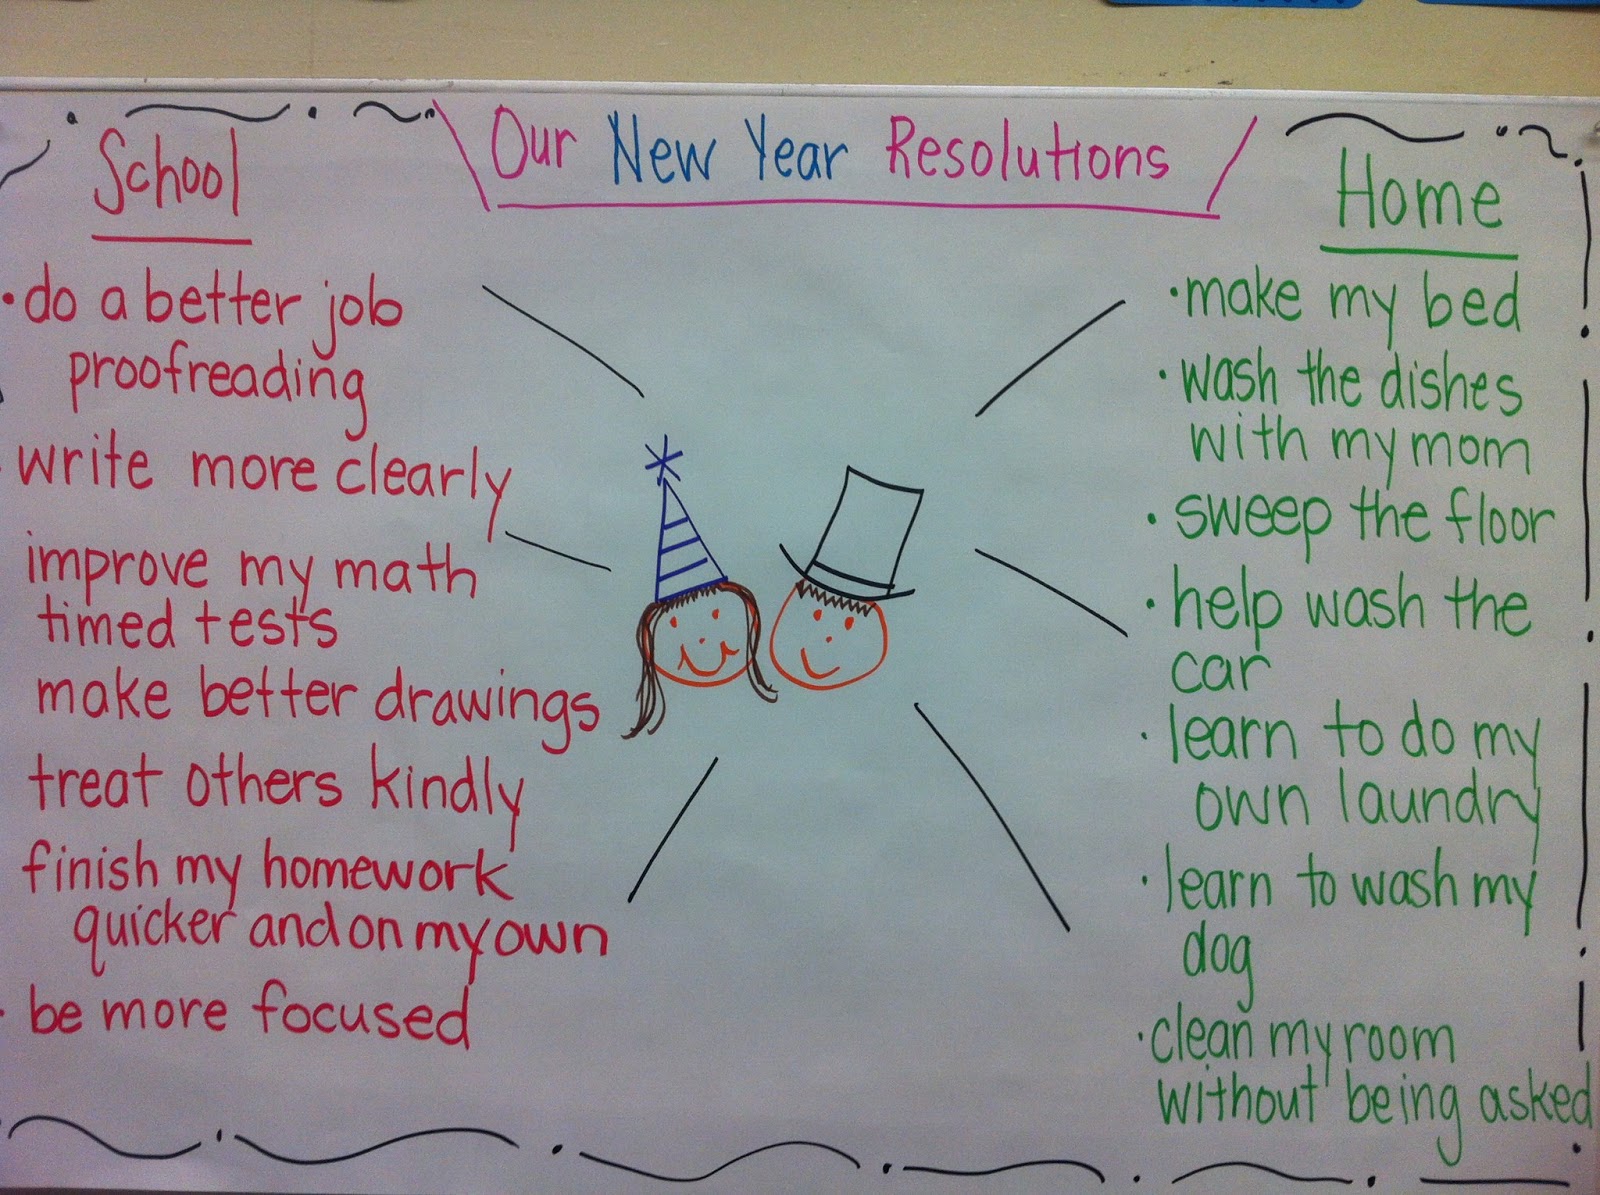 Our New Year Resolutions
School
• do a better job
proofreading
· write more clearly
improve my math
timed tests
make better drawings
treat others kindly
finish my homework
quicker and on my own
· be more focused
Home
· make my bed
· wash the dishes
with my mom
· sweep the floor
· help wash the
car
· learn to do my
own laundry
· learn to wash my
dog
· clean my room
without being asked